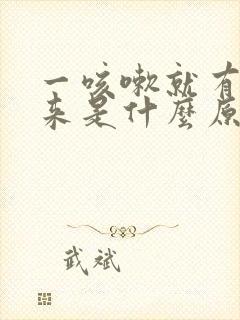 一咳嗽就有
来是什麼原
武斌